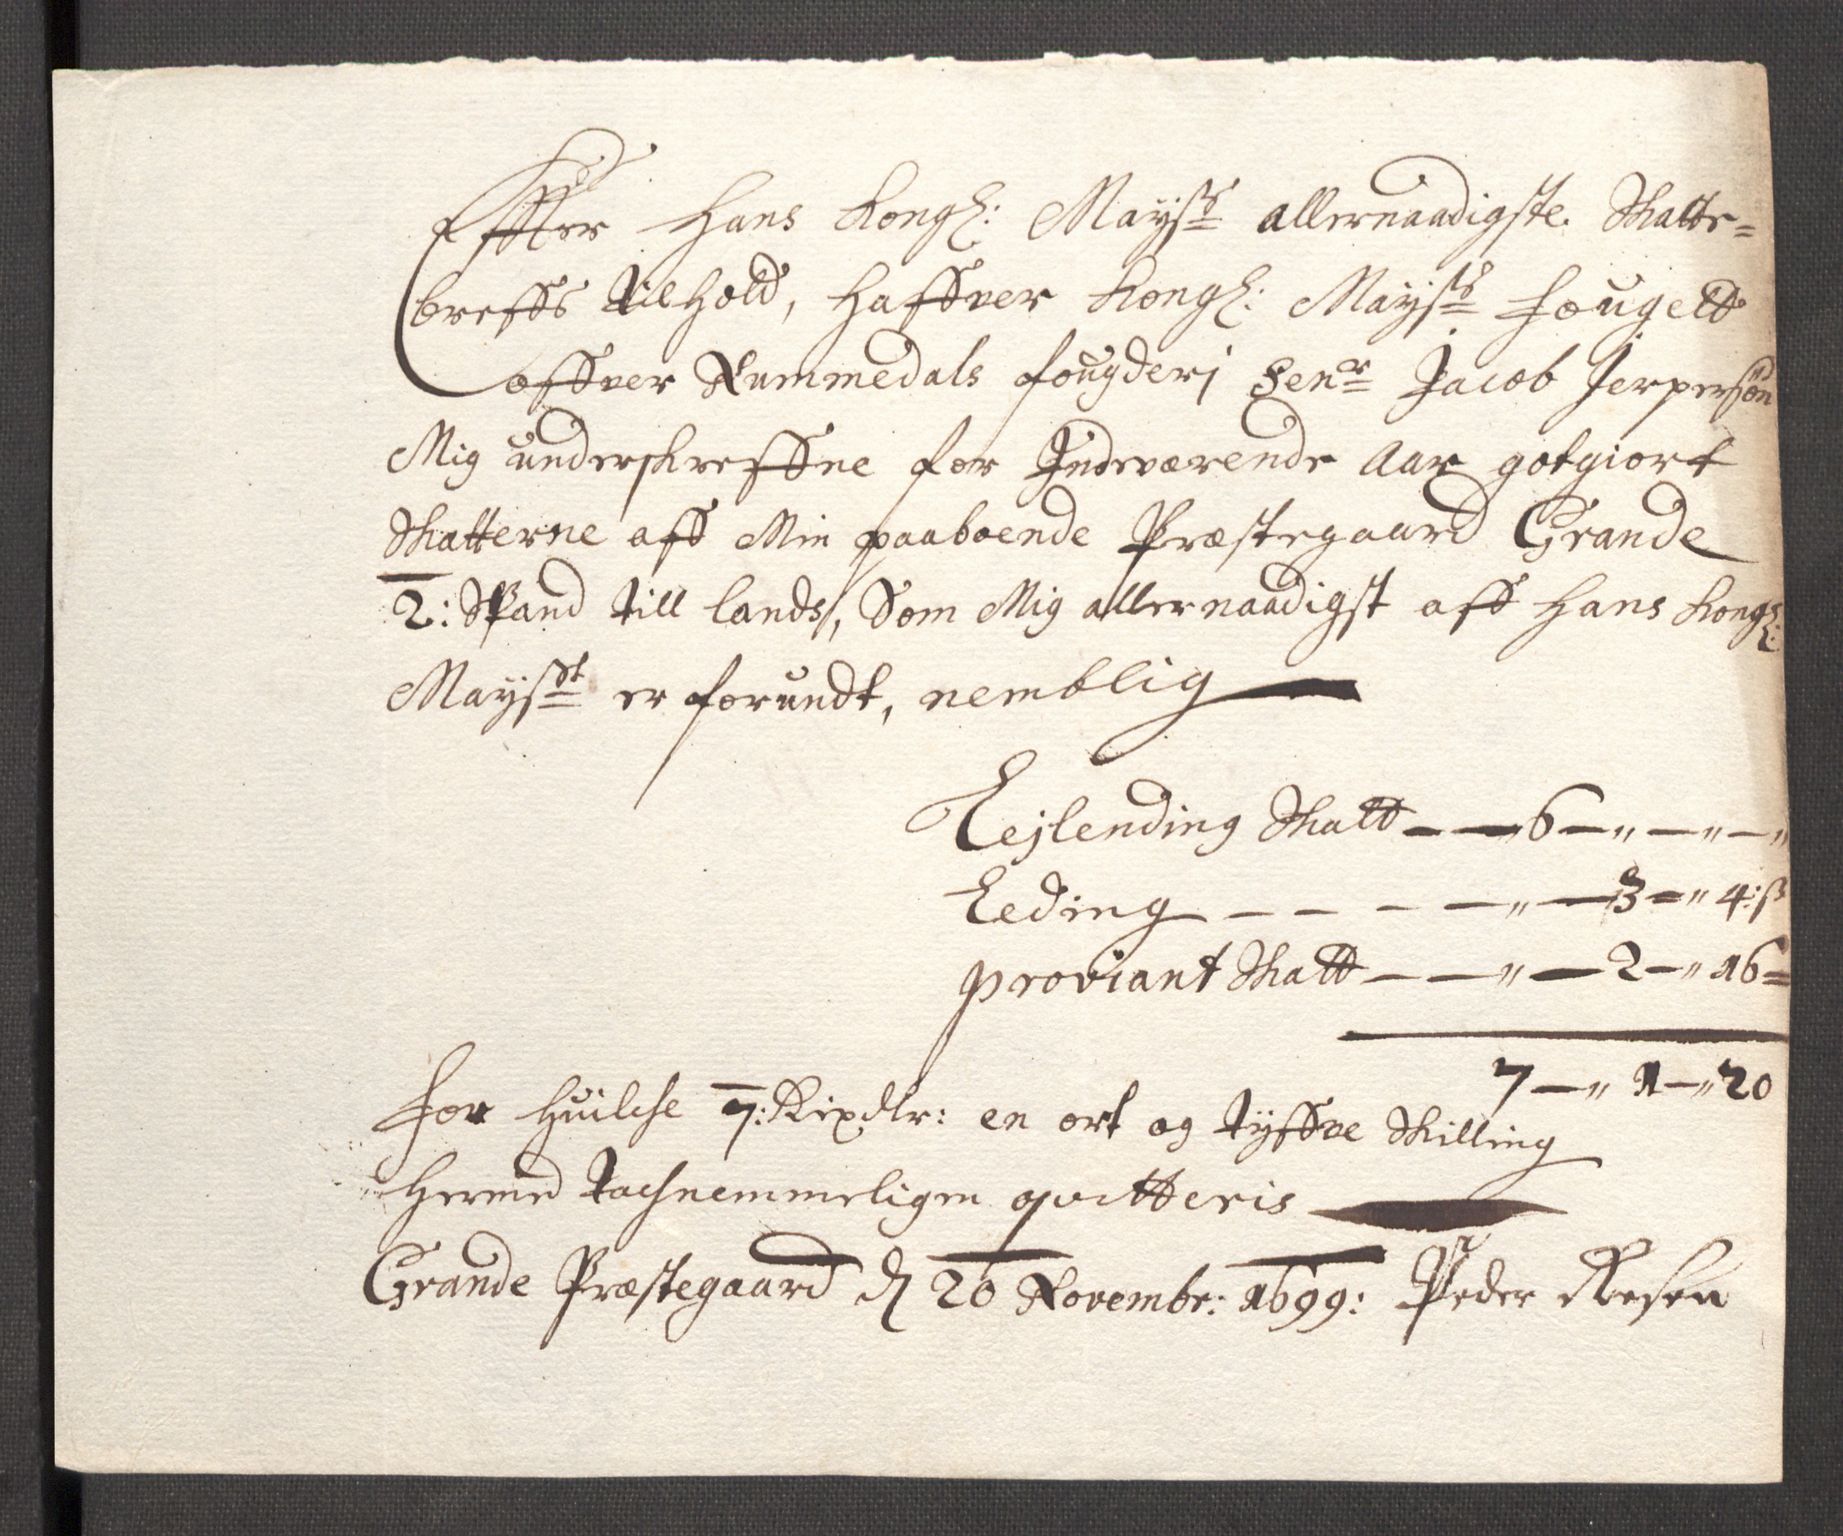 Effter Hans Kongl: Maysts allernaadigste Skatte=
breffs Tilhold, haffver Kongl: Maysts fougett
offver Nummedals fougderj Senr Jacob Jerpersøn
Mig underskreffne for Indeværende Aar gotgiort
Skatterne aff Min paaboende Præstegaard Grande
2: Spand till lands, Som Mig allernaadigst aff Hans Kongl:
Mayst er forundt, nemblig
Lejlending Skatt — — 6 — „ — „ — „
Leding — — — — „ — 3 — „ 4: ß
proviant Skatt — — „ — 2 — „ 16 =
7 — „ 1 — „ 20
for huilche 7: Rixdlr: en ort og tyffve Skilling
hermed Tachnemmeligen qvitteris
Grande Præstegaard d 20 Novembr: 1699: Peder Resen